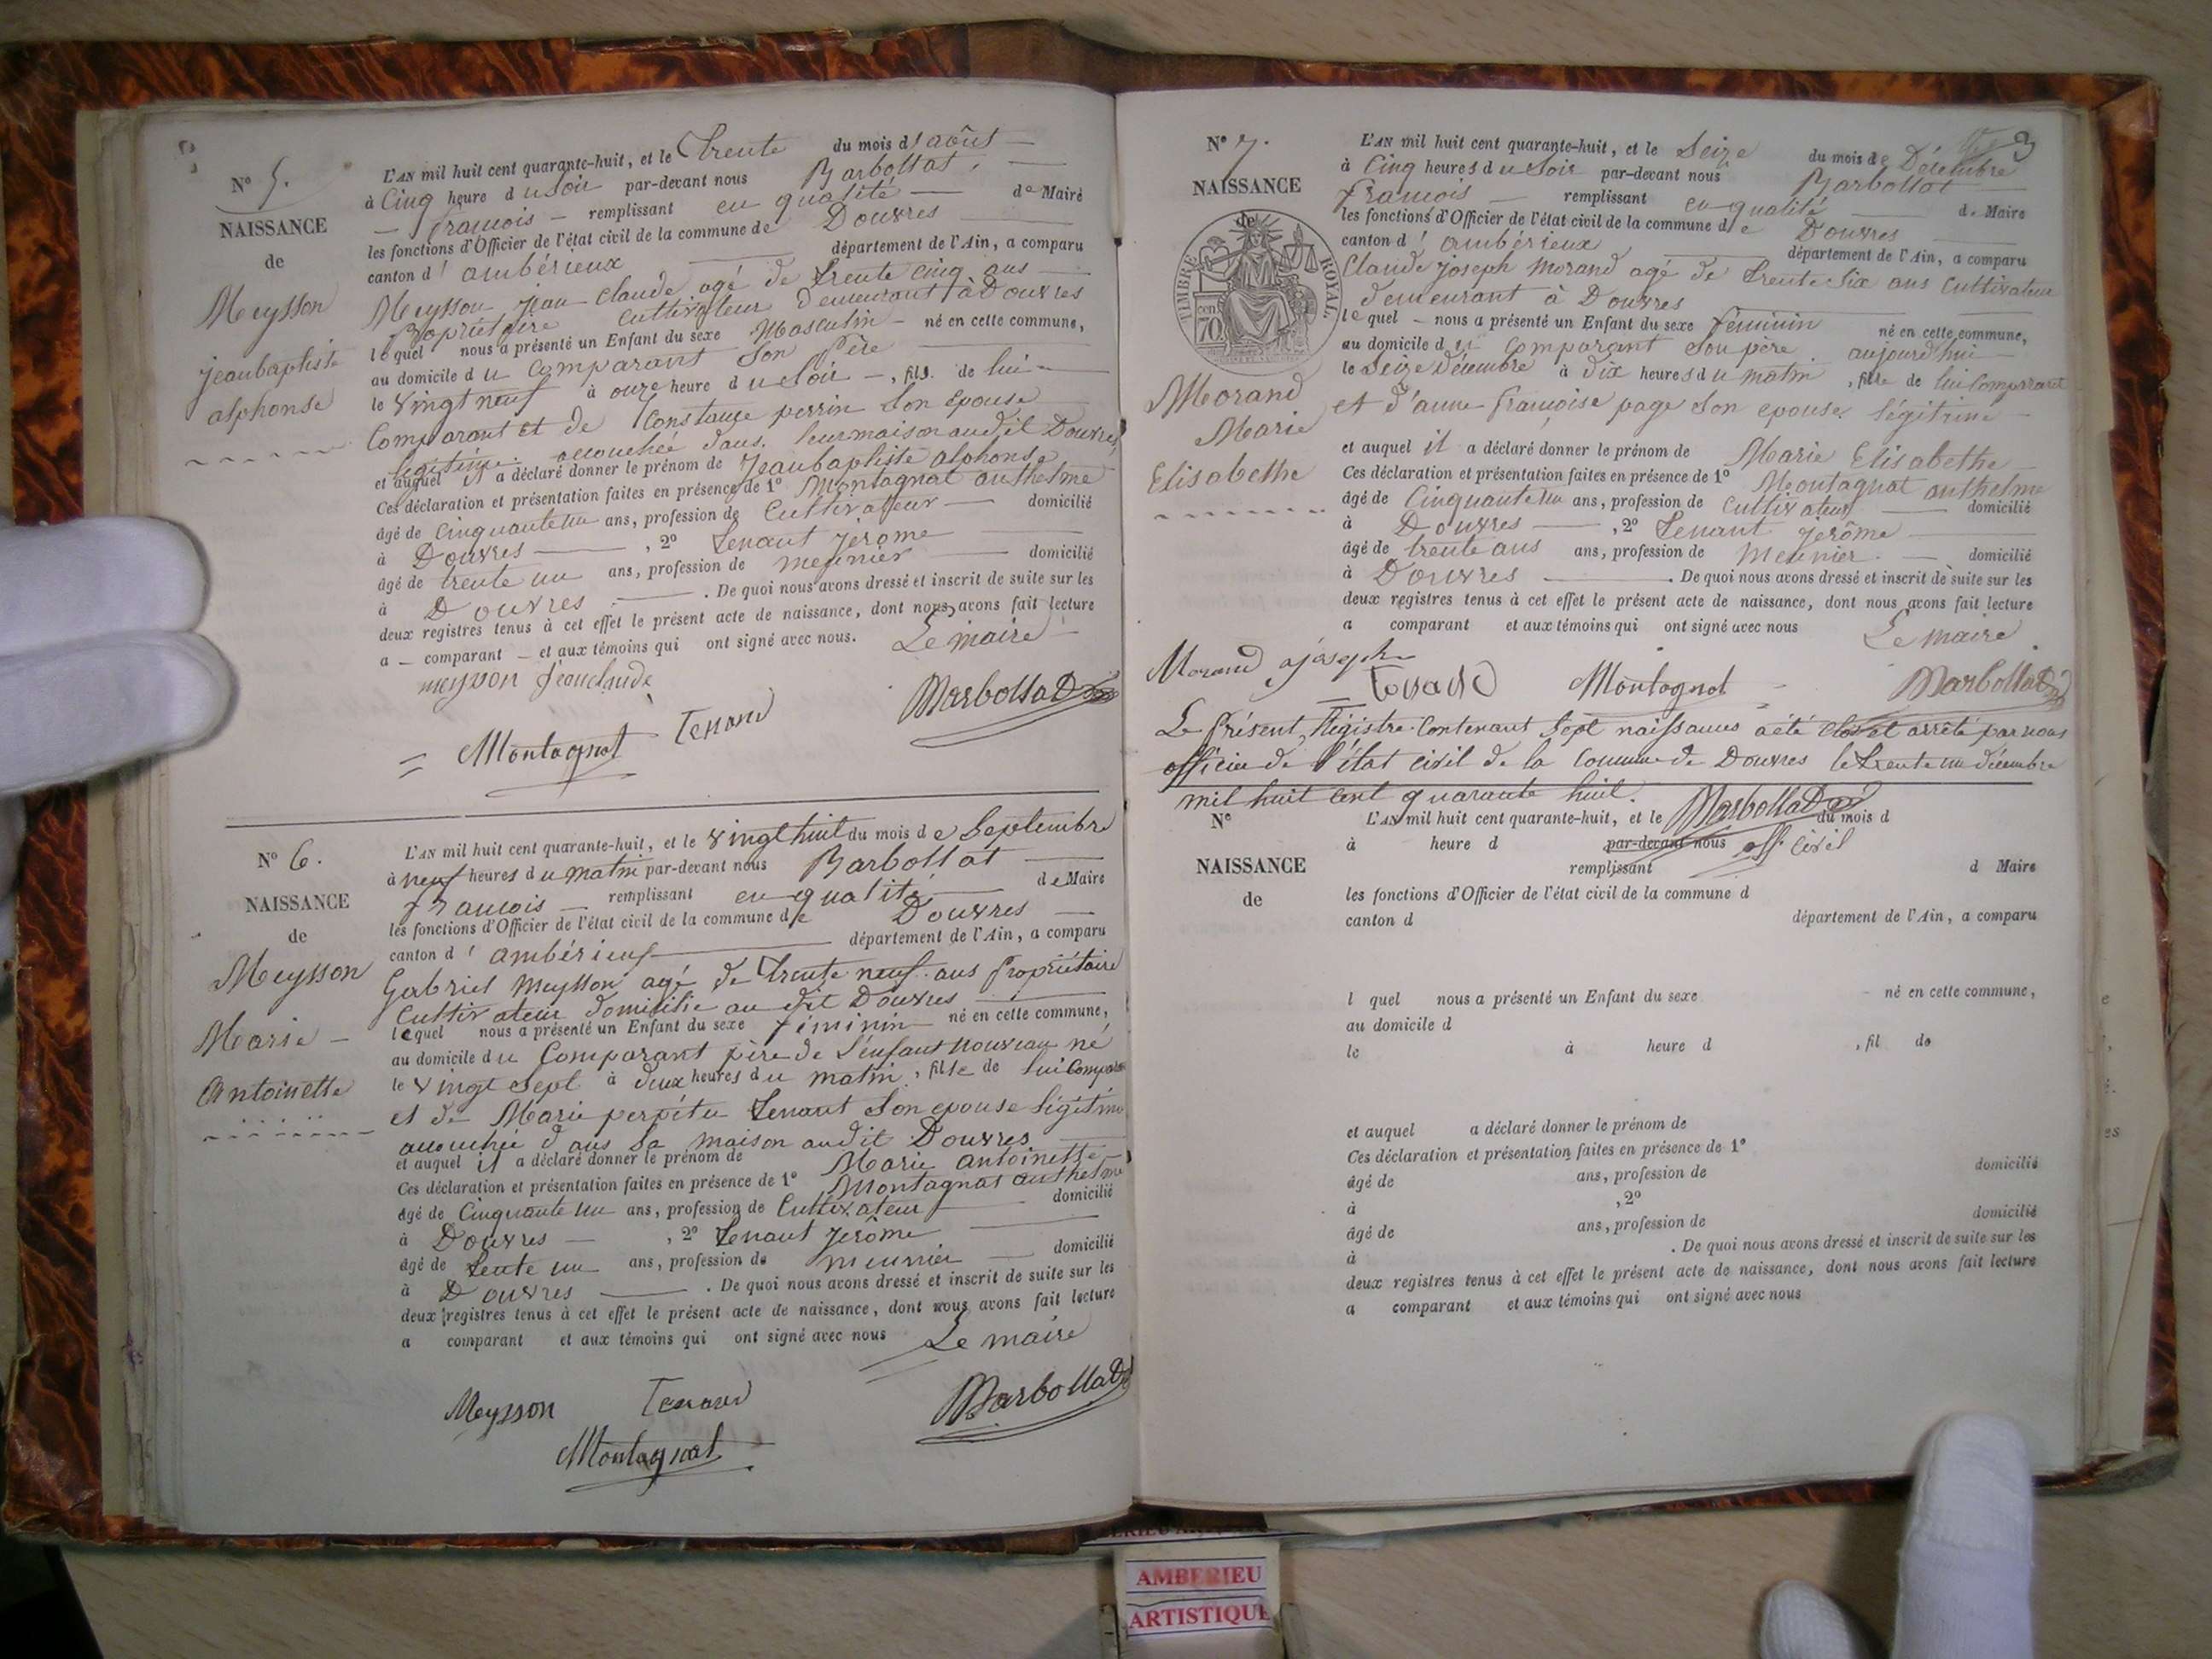 N° 5.
NAISSANCE
de
Meysson
jeanbaptiste
alphonse
L'AN mil huit cent quarante-huit, et le trente du mois d'août
à Cinq heure du Soir par-devant nous Barbollat,
françois remplissant en qualité de Maire
les fonctions d'Officier de l'état civil de la commune de Douvres
canton d'ambérieux département de l'Ain, a comparu
Meysson jean Claude agé de trente cinq ans
Propriétaire Cultivateur demeurant à Douvres
lequel nous a présenté un Enfant du sexe Masculin né en cette commune,
au domicile du Comparant Son Père
le Vingt neuf à onze heure du Soir, fils de lui
Comparant et de Constance perrin Son epouse
légitime accouchée dans leur maison audit Douvres
et auquel il a déclaré donner le prénom de Jeanbaptiste alphonse
Ces déclaration et présentation faites en présence de 1° Montagnat anthelme
âgé de Cinquante un ans, profession de Cultivateur domicilié
à Douvres, 2° tenant jerome
âgé de trente un ans, profession de meunier domicilié
à Douvres. De quoi nous avons dressé et inscrit de suite sur les
deux registres tenus à cet effet le présent acte de naissance, dont nous avons fait lecture
a comparant et aux témoins qui ont signé avec nous. Le maire
meysson Jeanclaude
Montagnat Tenand Barbollat
N° 6.
NAISSANCE
de
Meysson
Marie
Antoinette
L'AN mil huit cent quarante-huit, et le vingt huit du mois de Septembre
à neuf heures du matin par-devant nous Barbollat
françois remplissant en qualité de Maire
les fonctions d'Officier de l'état civil de la commune de Douvres
canton d'ambérieux département de l'Ain, a comparu
Gabriel Meysson agé de trente neuf ans Propriétaire
Cultivateur domicilié au dit Douvres
lequel nous a présenté un Enfant du sexe féminin né en cette commune,
au domicile du Comparant père de l'enfant nouveau né
le vingt Sept à deux heures du matin, fille de lui Comparant
et de Marie perpétue tenant Son epouse légitime
accouchée dans sa maison audit Douvres
et auquel il a déclaré donner le prénom de Marie antoinette
Ces déclaration et présentation faites en présence de 1° Montagnat anthelme
âgé de Cinquante un ans, profession de Cultivateur domicilié
à Douvres, 2° tenant jerôme
âgé de tente un ans, profession de meunier domicilié
à Douvres. De quoi nous avons dressé et inscrit de suite sur les
deux registres tenus à cet effet le présent acte de naissance, dont nous avons fait lecture
a comparant et aux témoins qui ont signé avec nous Le maire
Meysson Tenand Barbollat
Montagnat
3
N° 7.
NAISSANCE
de
TIMBRE ROYAL
cen 70
Morand
Marie
Elisabethe
L'AN mil huit cent quarante-huit, et le Seize du mois de Décembre
à Cinq heures du Soir par-devant nous Barbollat
françois remplissant en qualité de Maire
les fonctions d'Officier de l'état civil de la commune de Douvres
canton d'ambérieux département de l'Ain, a comparu
Claude joseph Morand agé de trente Six ans Cultivateur
demeurant à Douvres
lequel nous a présenté un Enfant du sexe féminin né en cette commune,
au domicile du Comparant Son père. aujourd'hui
le Seize Décembre à dix heures du matin, fille de lui Comparant
et d'anne françoise page Son epouse légitime
et auquel il a déclaré donner le prénom de Marie Elisabethe
Ces déclaration et présentation faites en présence de 1° Montagnat anthelme
âgé de Cinquante un ans, profession de Cultivateur domicilié
à Douvres, 2° tenant jerôme
âgé de trente ans ans, profession de meunier domicilié
à Douvres. De quoi nous avons dressé et inscrit de suite sur les
deux registres tenus à cet effet le présent acte de naissance, dont nous avons fait lecture
a comparant et aux témoins qui ont signé avec nous Le maire
Morand joseph
Tenand Montagnat Barbollat
Le Présent Régistre Contenant Sept naissances a été clos et arrêté par nous
officier de l'état civil de la Commune de Douvres le trente un décembre
mil huit cent quarante huit. Barbollat
off. civil
N°
NAISSANCE
de
L'AN mil huit cent quarante-huit, et le du mois d
à heure d par-devant nous
remplissant d Maire
les fonctions d'Officier de l'état civil de la commune d
canton d département de l'Ain, a comparu
l quel nous a présenté un Enfant du sexe né en cette commune,
au domicile d
le à heure d , fil de
et auquel a déclaré donner le prénom de
Ces déclaration et présentation faites en présence de 1°
âgé de ans, profession de domicilié
à , 2°
âgé de ans, profession de domicilié
à . De quoi nous avons dressé et inscrit de suite sur les
deux registres tenus à cet effet le présent acte de naissance, dont nous avons fait lecture
a comparant et aux témoins qui ont signé avec nous
AMBERIEU
ARTISTIQUE